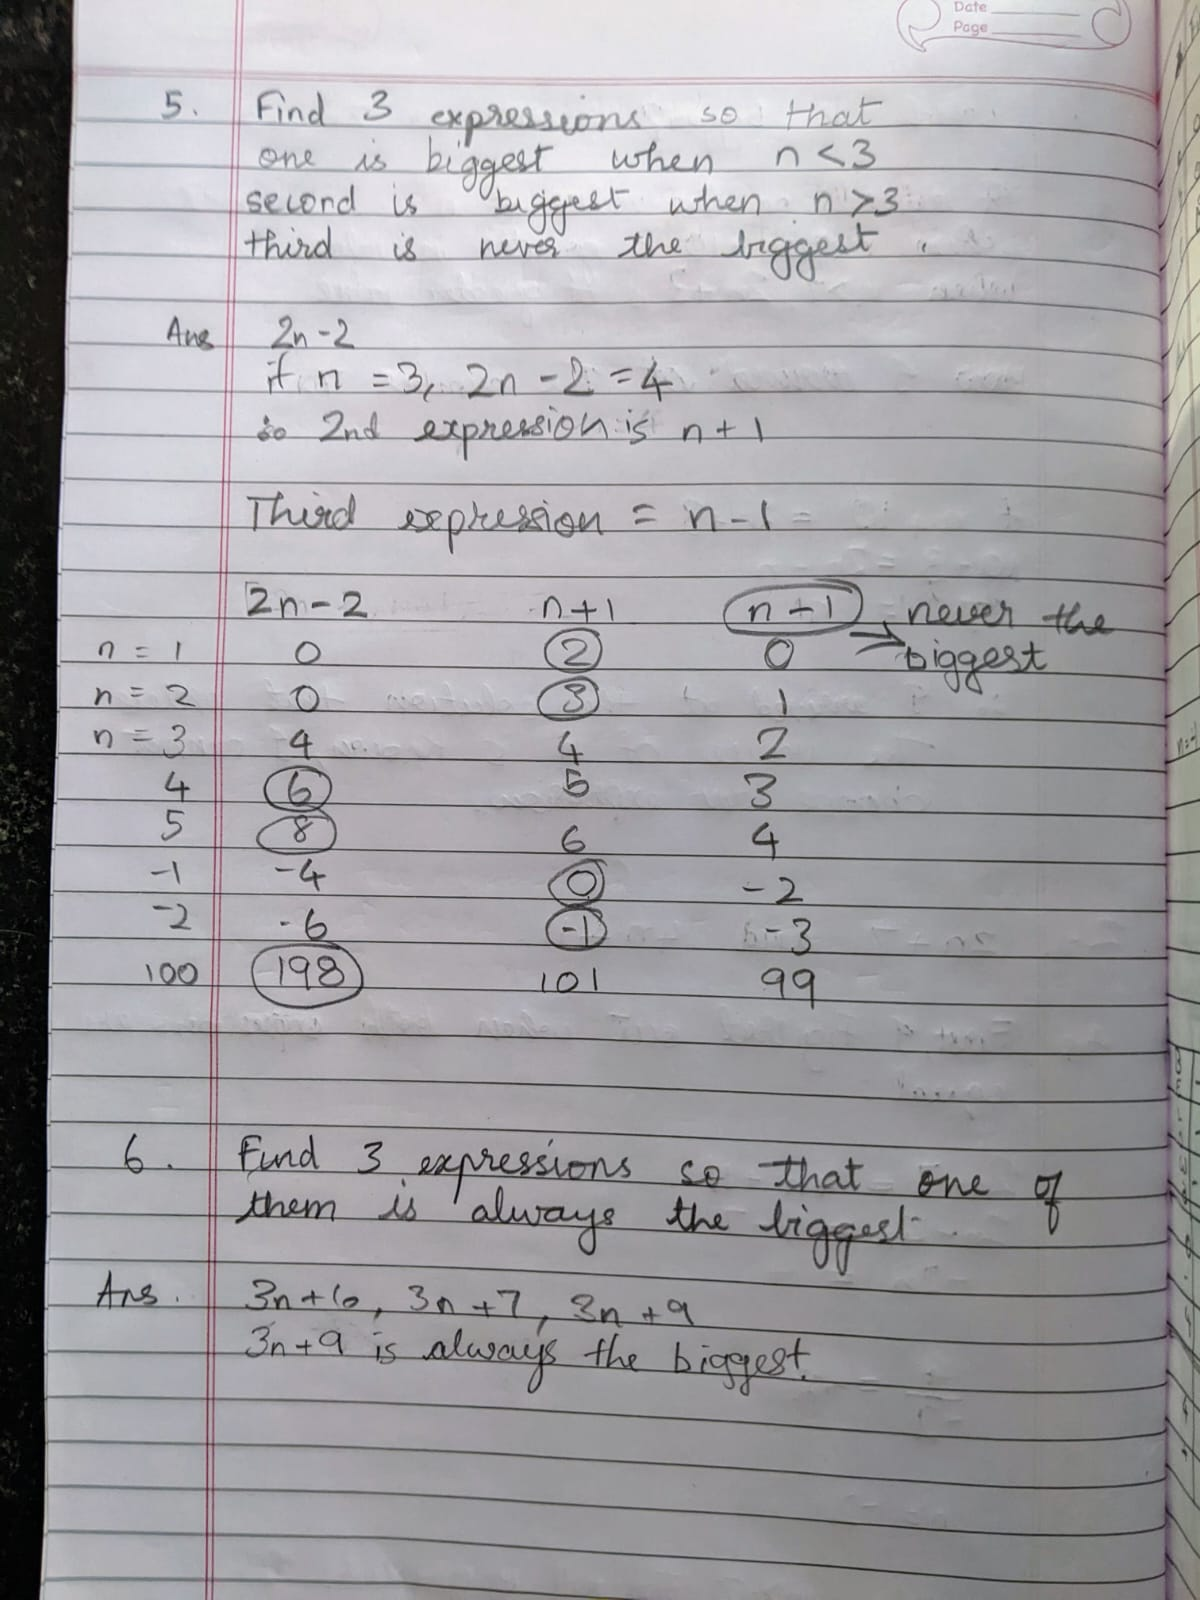 Date
Page
5. Find 3 expressions so that
one is biggest when n<3
second is biggest when n>3
third is never the biggest.
Ans 2n-2
if n = 3, 2n - 2 = 4
so 2nd expression is n+1
Third expression = n-1
2n-2 n+1 n-1 never the
n = 1 0 2 0 → biggest
n = 2 0 3 1
n = 3 4 4 2
4 6 5 3
5 8 6 4
-1 -4 0 -2
-2 -6 -1 -3
100 198 101 99
6. Find 3 expressions so that one of
them is always the biggest.
Ans. 3n+6, 3n+7, 3n+9
3n+9 is always the biggest.